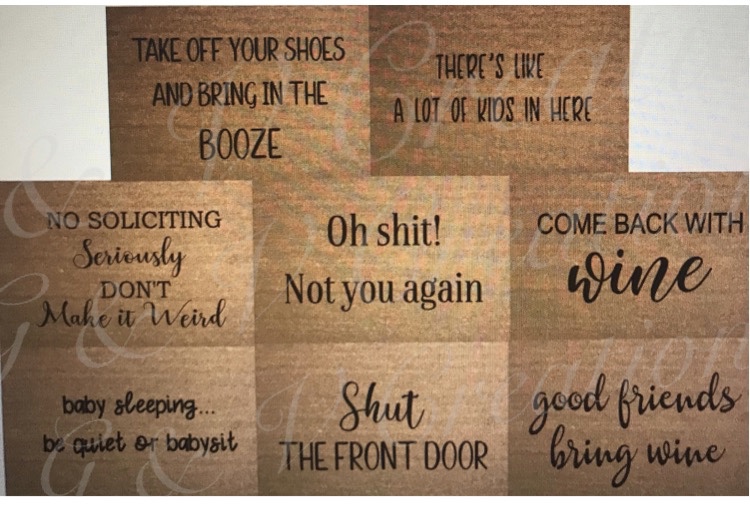 TAKE OFF YOUR SHOES
AND BRING IN THE
BOOZE
THERE'S LIKE
A LOT OF KIDS IN HERE
NO SOLICITING
Seriously
DON'T
Make it Weird
Oh shit!
Not you again
COME BACK WITH
wine
baby sleeping...
be quiet or babysit
Shut
THE FRONT DOOR
good friends
bring wine